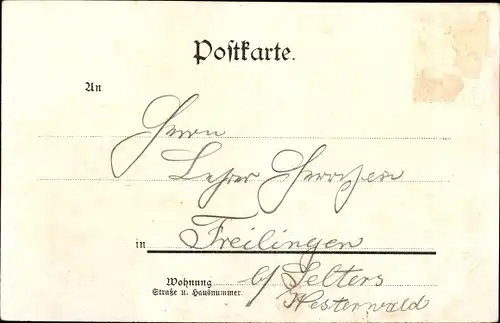 Postkarte.
An
Herrn
Lehrer
in Freilingen
Wohnung b/ Selters
Straße u. Hausnummer. Westerwald